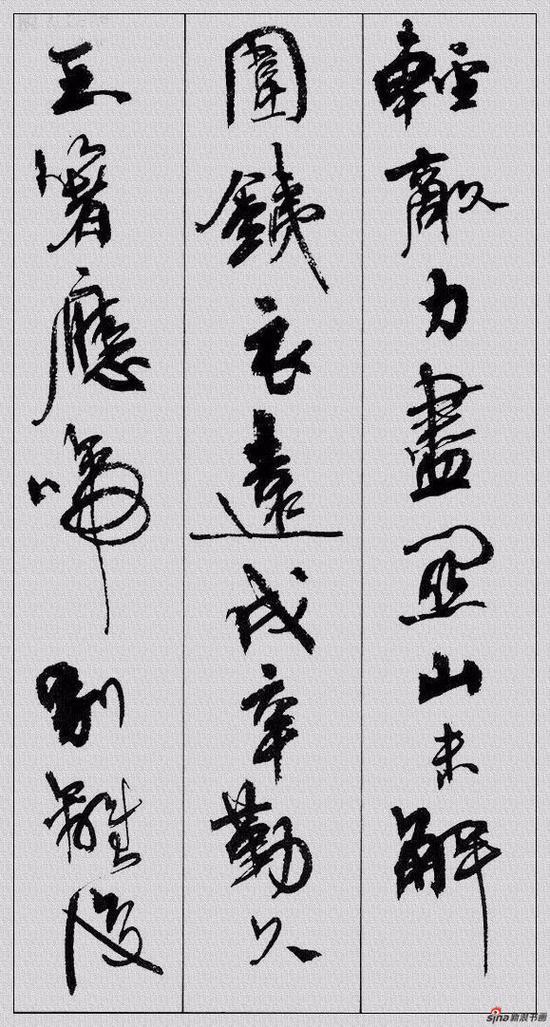 輕敵力盡關山未解
圍鐵衣遠戍辛勤久
玉箸應啼別離後
sina新浪书画